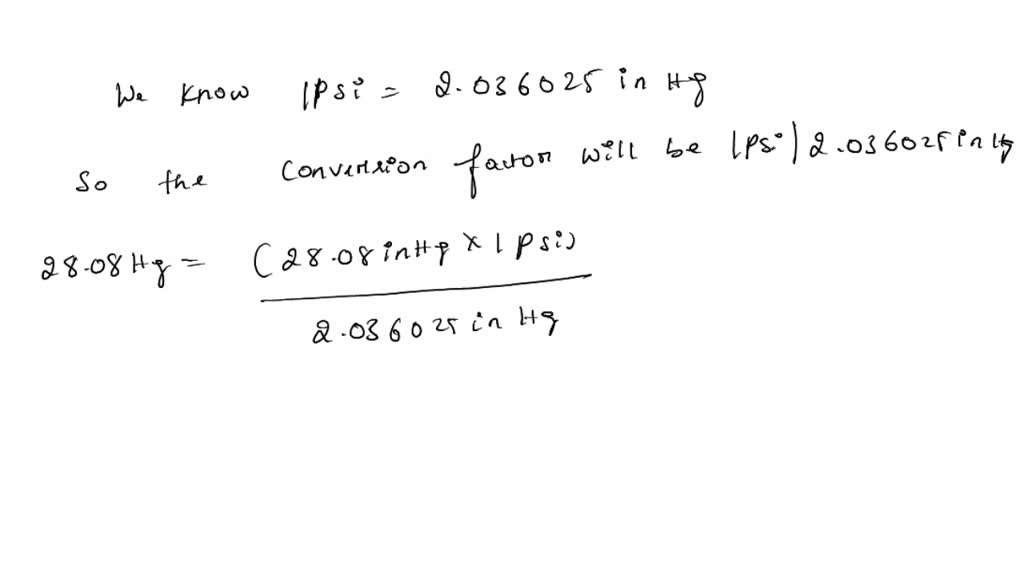 We know 1psi = 2.036025 in Hg
So the conversion factor will be 1psi | 2.036025 in Hg
28.08 Hg = (28.08 in Hg x 1 psi)
2.036025 in Hg